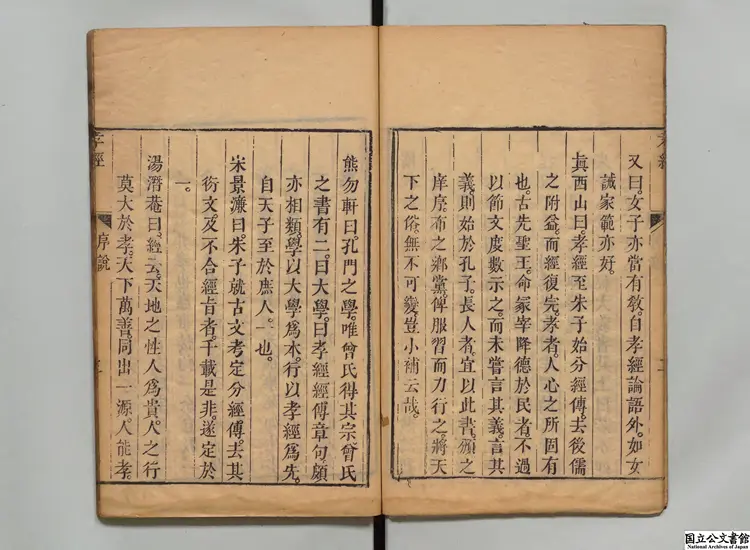 又曰。女子亦當有敎。自孝經論語外。如女
誡家範亦好。
眞西山曰。孝經至朱子始分經傳。去後儒
之附益。而經復完。孝者。人心之所固有
也。古先聖王。命冢宰降德於民者。不過
以節文度數示之。而未嘗言其義。言其
義。則始於孔子。長人者。宜以此書。頒之
庠序。布之鄉黨。俾服習而力行之。將天
下之俗。無不可變。豈小補云哉。
熊勿軒曰。孔門之學。唯曾氏得其宗。曾氏
之書有二。曰大學。曰孝經。經傳章句。頗
亦相類。學以大學爲本。行以孝經爲先。
自天子至於庶人。一也。
宋景濂曰。朱子就古文考定。分經傳。去其
衍文及不合經旨者。千載是非。遂定於
一。
湯潛菴曰。經云。天地之性人爲貴。人之行
莫大於孝。天下萬善。同出一源。人能孝。
孝經
序說
国立公文書館
National Archives of Japan